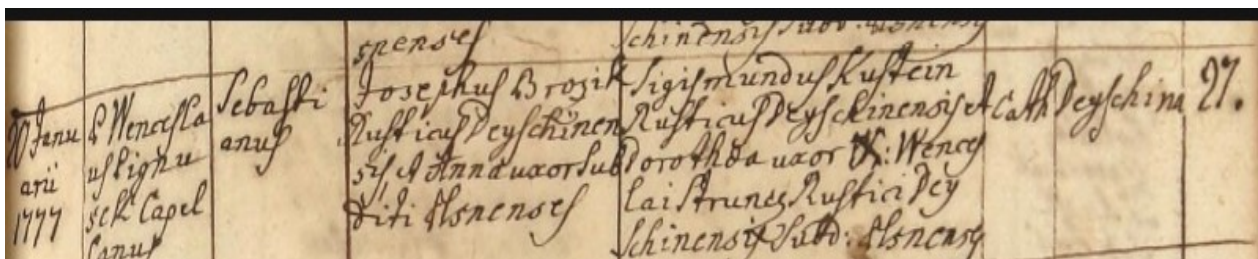 spenses
schinensis Subd: Elsnensis
20 Janu
arii
1777
P Wencesla
us Lignu
sek Capel
lanus
Sebasti
anus
Josephus Brozik
Rusticus Deyschinen
sis et Anna uxor Sub
diti Elsnenses
Sigismundus Kustein
Rusticus Deyschinensis et
Dorothea uxor X: Wences
lai Strunez Rustici Dey
schinensis Subd: Elsnensis
Cath
Deyschina
27.